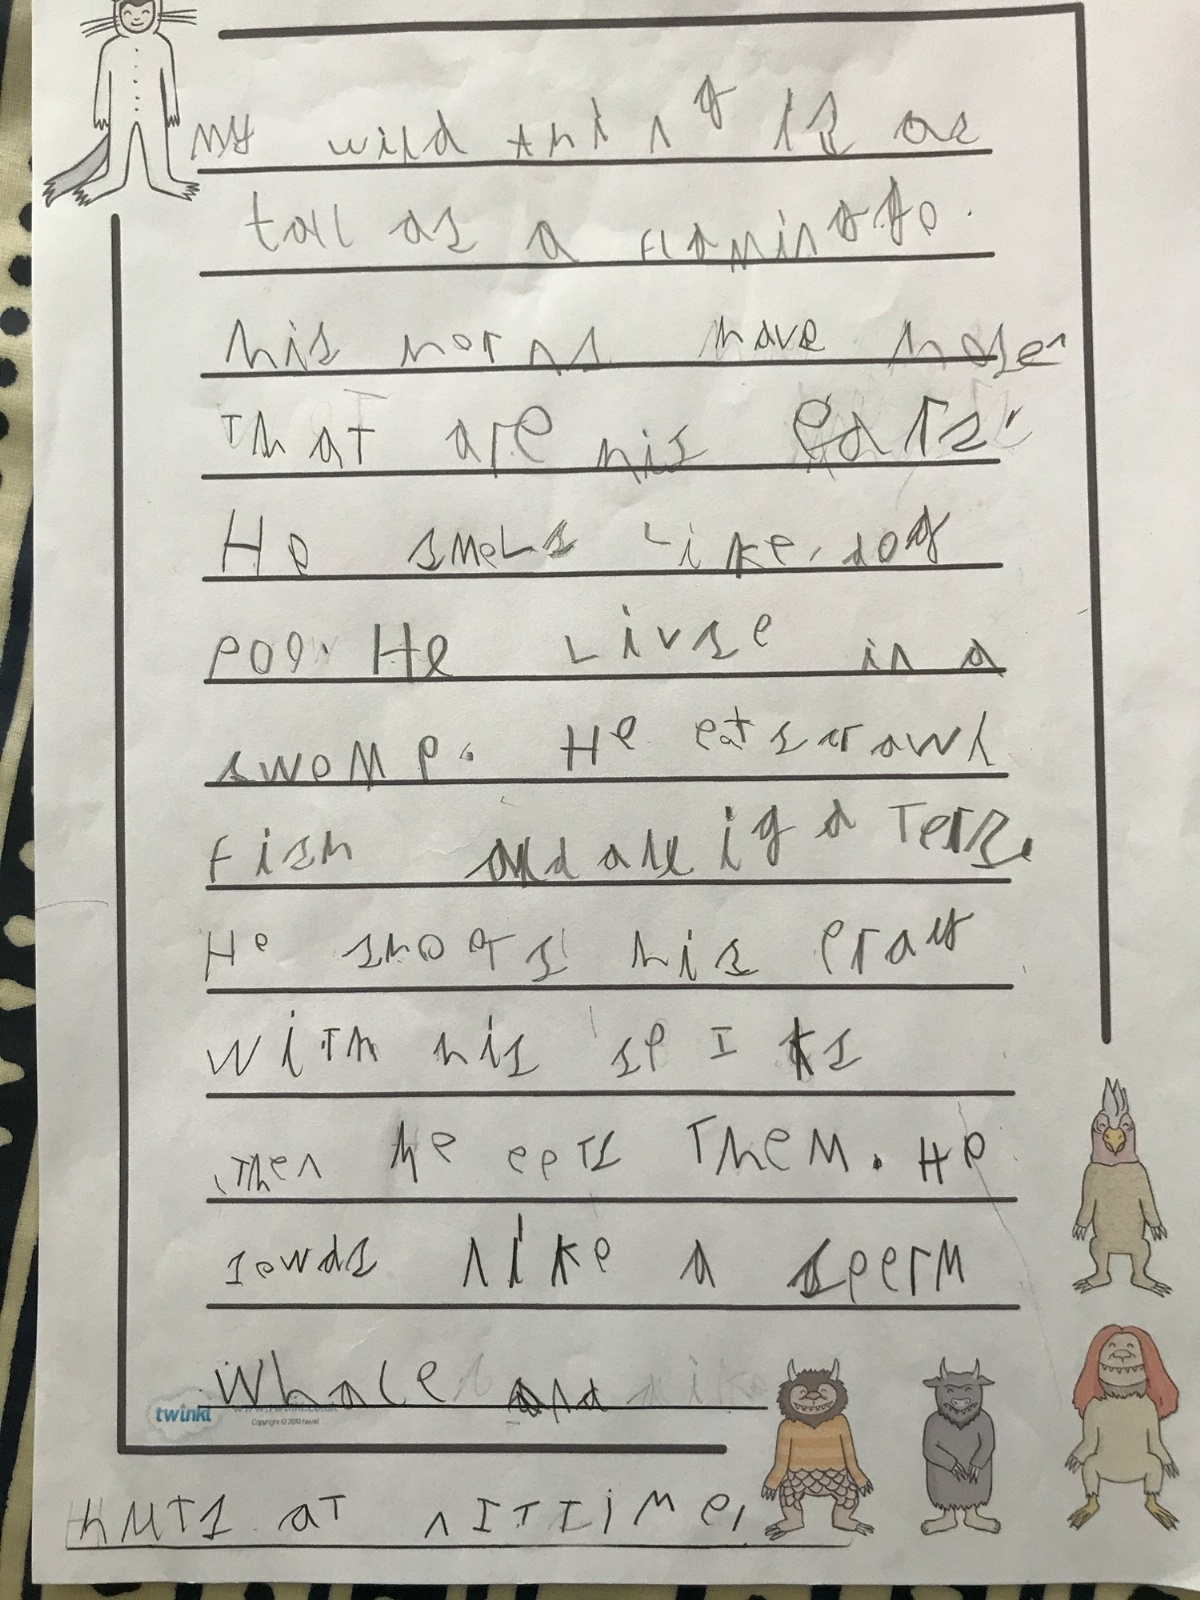 My wild thing is as
tall as a flaminggo.
his horns have hole
That are his ears.
He smels Like dog
poo. He Livse in a
swomp. He eats rawl
fish and aligaters.
He shoots his pray
with his spiks
Then he eets Them. He
sowds like a sperm
whale and
hnts at nittime.
twinkl
Copyright © 2010 twinkl